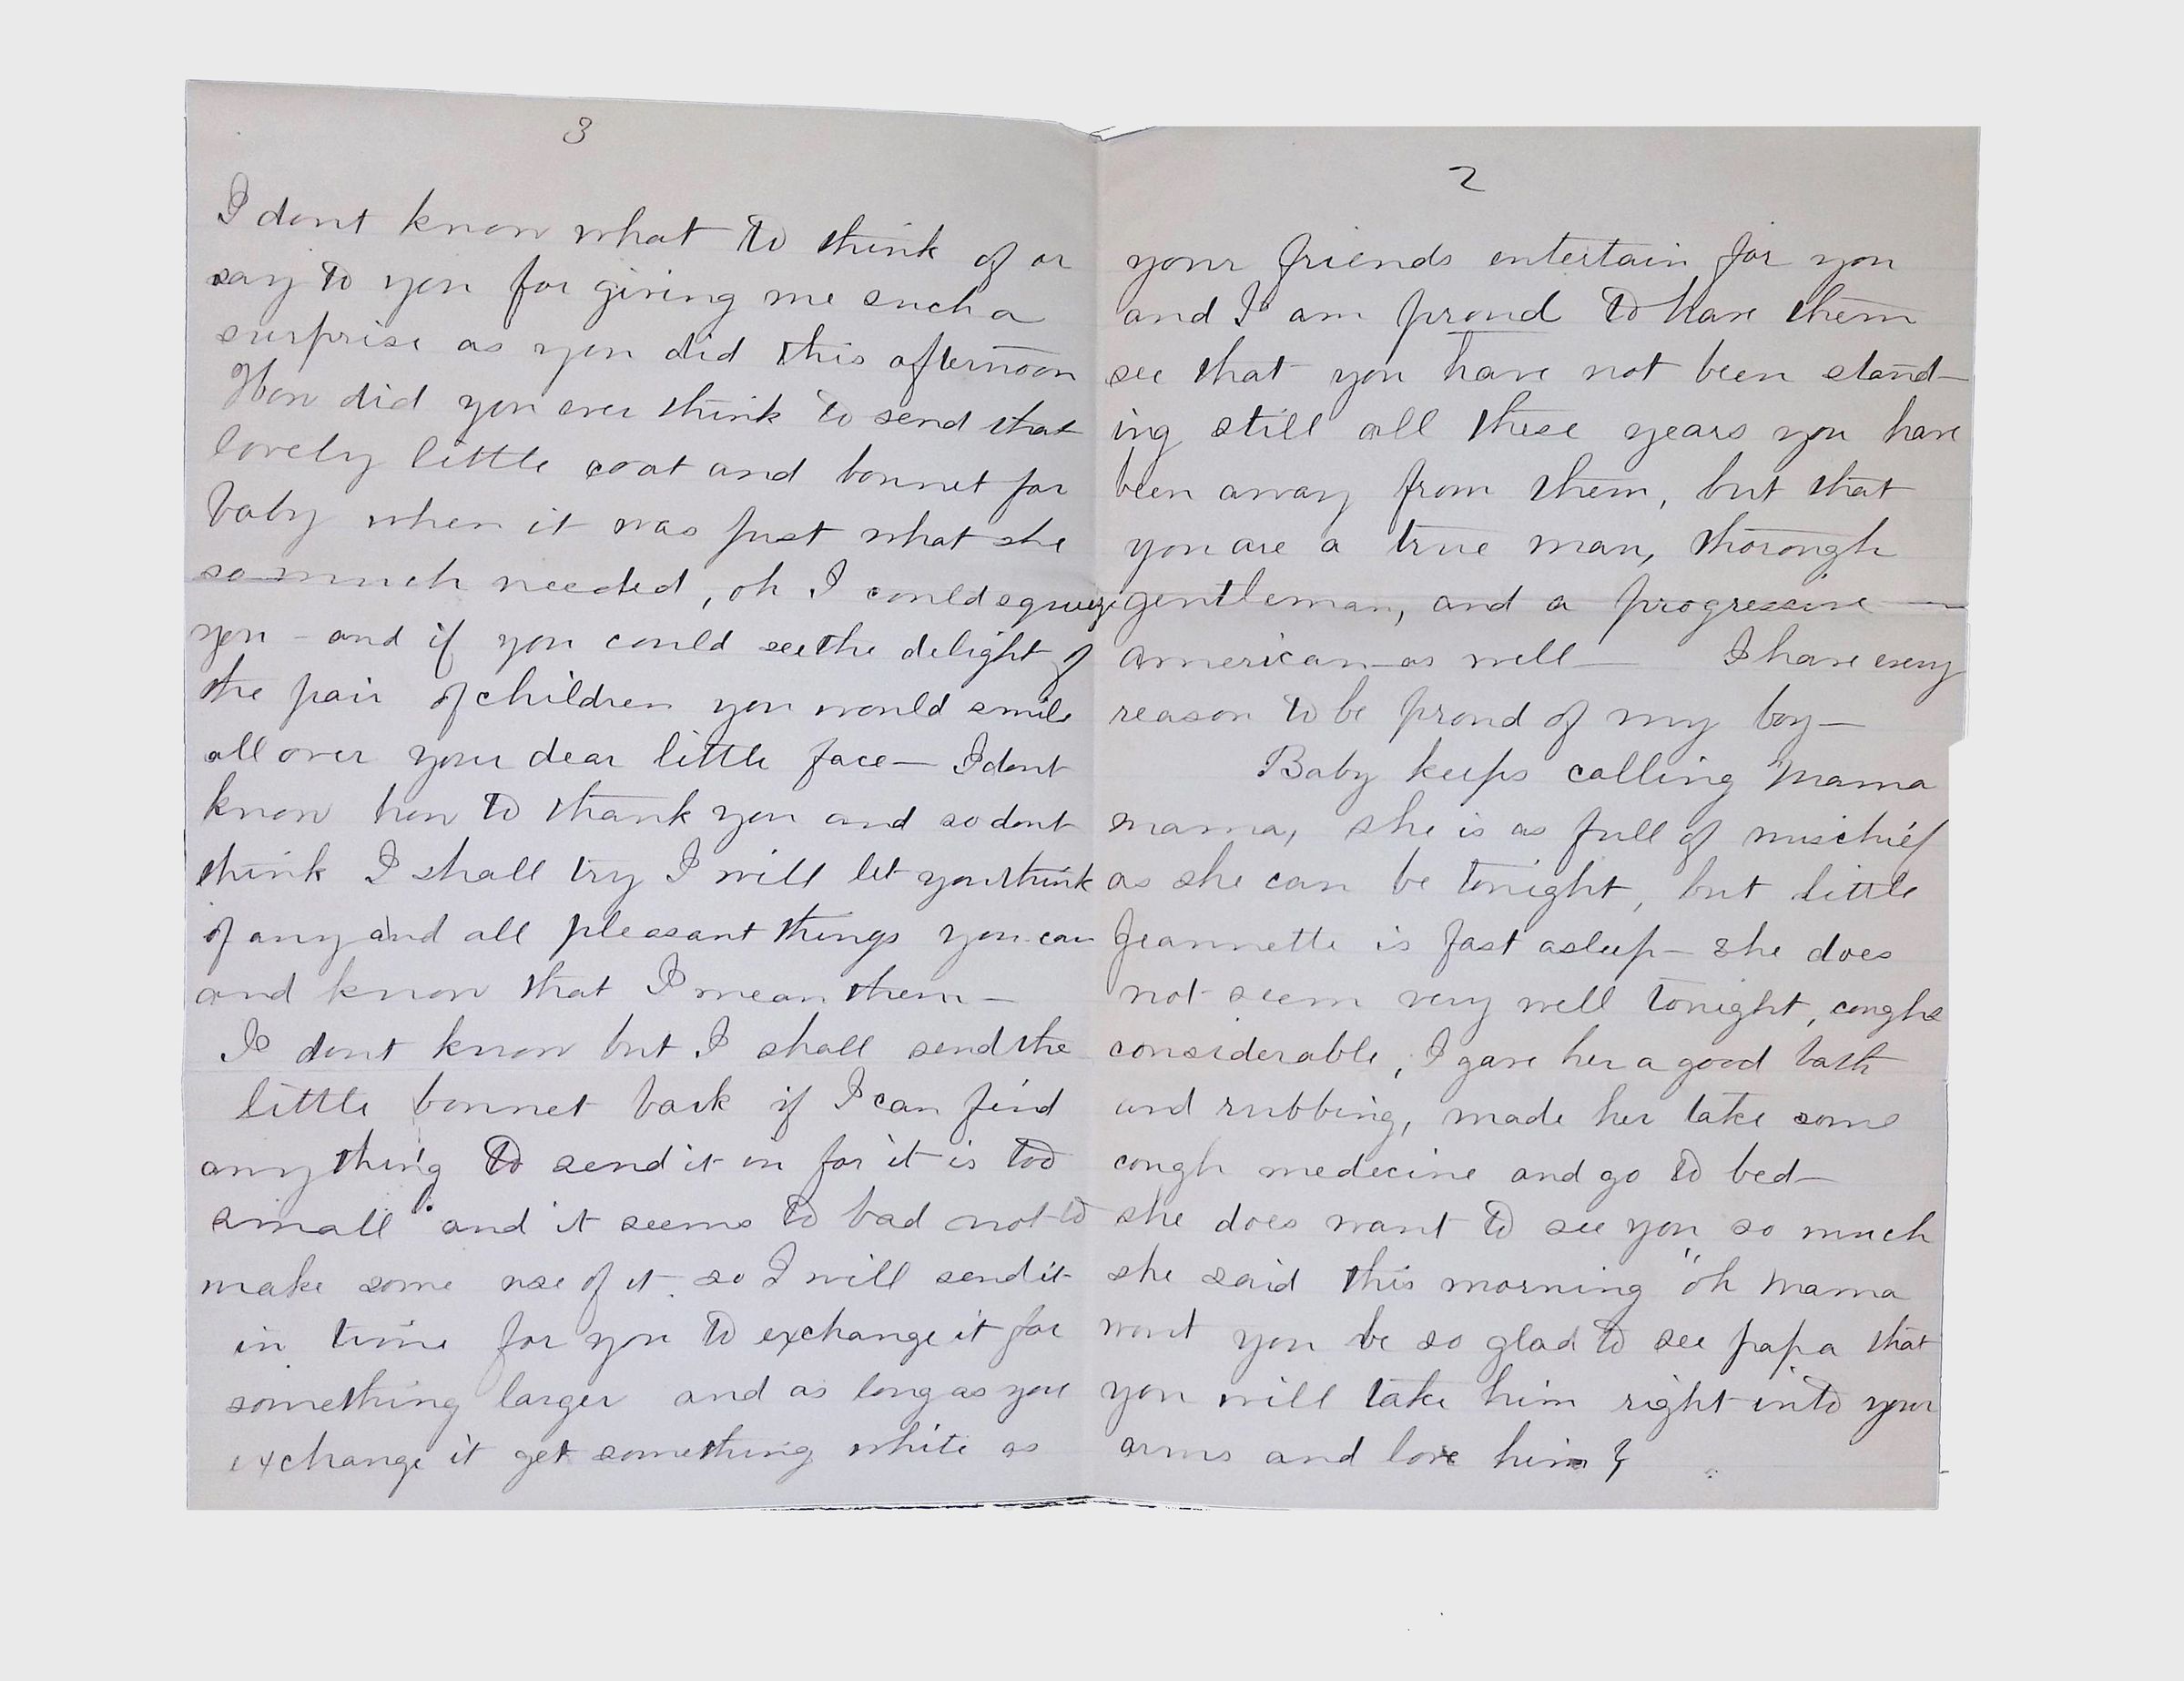 2
your friends entertain for you
and I am proud to have them
see that you have not been stand-
ing still all these years you have
been away from them, but that
you are a true man, thorough
gentleman, and a progressive —
american as well — I have every
reason to be proud of my boy —
Baby keeps calling Mama
mama, she is as full of mischief
as she can be tonight, but little
Jeannette is fast asleep — she does
not seem very well tonight, coughs
considerable, I gave her a good bath
and rubbing, made her take some
cough medecine and go to bed —
she does want to see you so much
she said this morning "oh Mama
wont you be so glad to see papa that
you will take him right into your
arms and love him?
3
I dont know what to think of or
say to you for giving me such a
surprise as you did this afternoon
How did you ever think to send that
lovely little coat and bonnet for
baby when it was just what she
so much needed, oh I could squeeze
you - and if you could see the delight of
the pair of children you would smile
all over your dear little face — I dont
know how to thank you and so dont
think I shall try I will let you think
of any and all pleasant things you can
and know that I mean them —
I dont know but I shall send the
little bonnet back if I can find
anything to send it in for it is too
small and it seems to bad not to
make some use of it so I will send it
in time for you to exchange it for
something larger and as long as you
exchange it get something white as